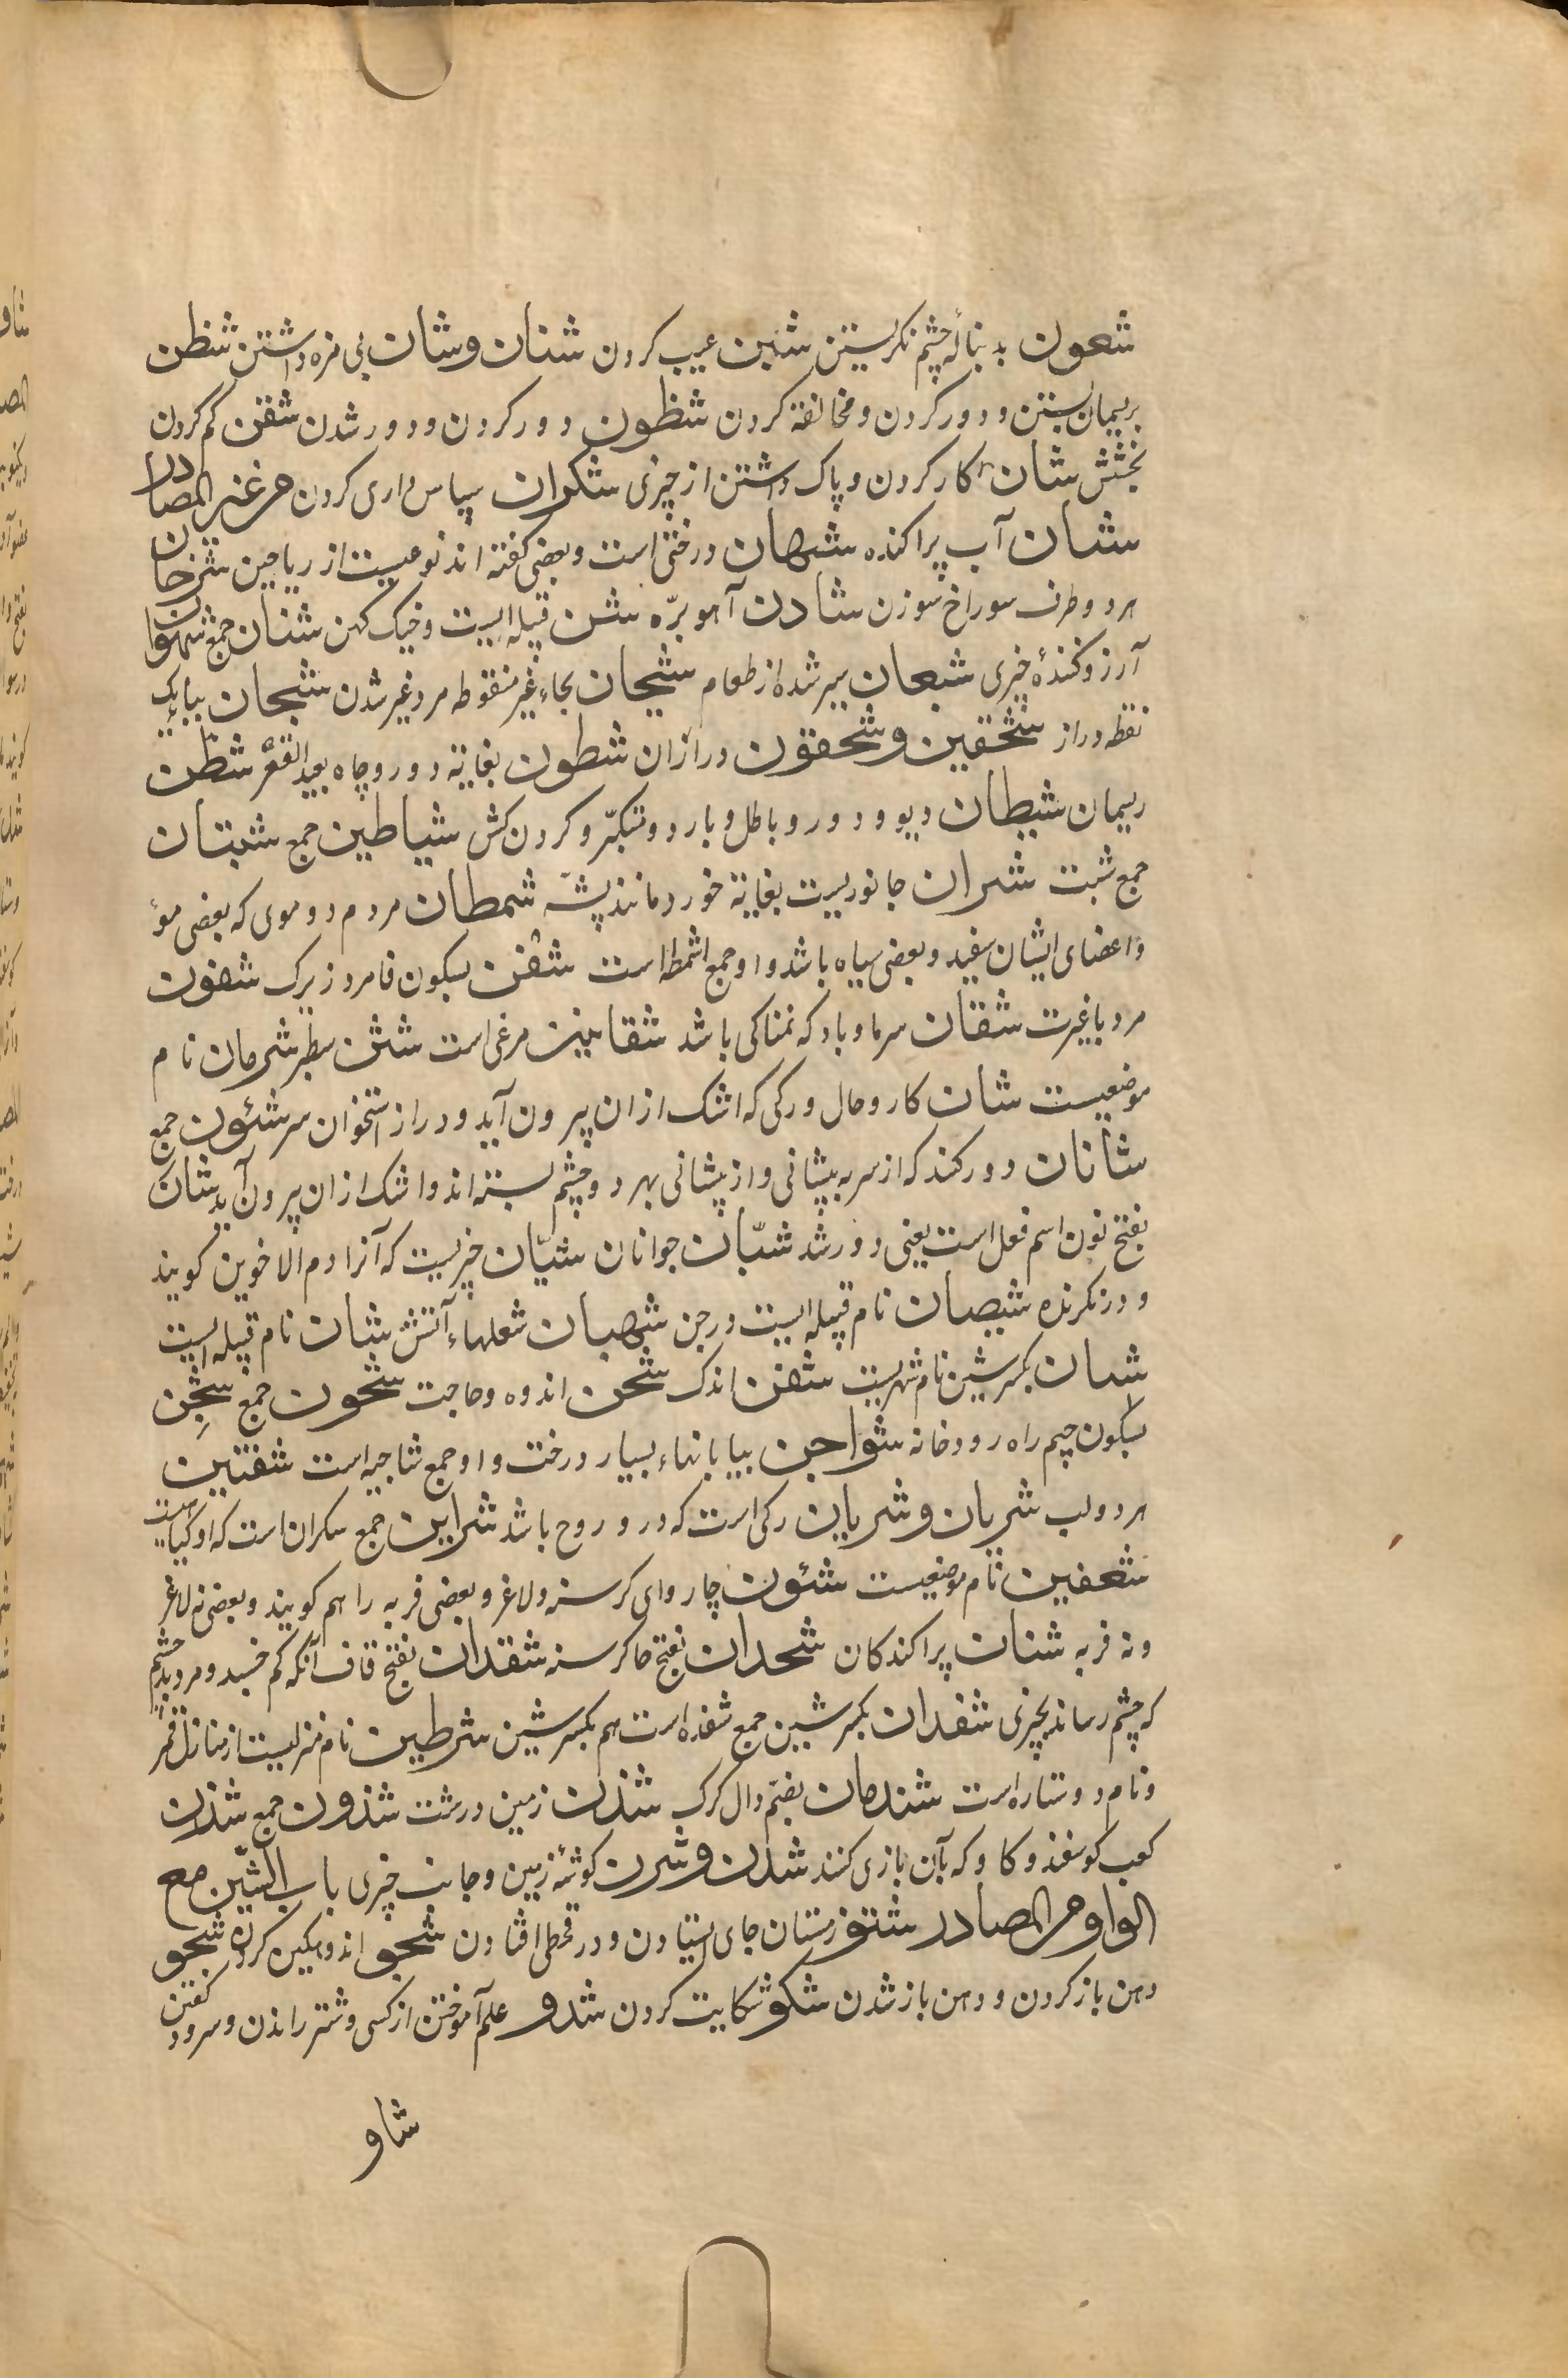 شعون بدنبالهٔ چشم نکریستن شین عیب کردن شنان و شنان بی مزه داشتن شطن
بریسمان بستن و دور کردن و مخالفة کردن شطون دور کردن و دور شدن شفن کم کردن
بخشش شان کار کردن و پاک داشتن از چیزی شکران سپاس داری کردن من غیر المصادر
شنان آب پراکنده شبهان درختی است و بعضی کفته اند نوعیست از ریاحین شرخان
هر دو طرف سوراخ سوزن شادن آهو برّه شن قبیله ایست و خیک کهن شنان جمع شهوان
آرزو کنندهٔ چیزی شبعان سیر شده از طعام شیحان بحاء غیر منقوطه مرد غیر شدن شبحان بباء یک
نقطه دراز شحقین و شحقون درازان شطون بغایة دور و چاه بعید القعر شطن
ریسمان شیطان دیو و دور و باطل و بارد و متکبّر و کردن کش شیاطین جمع شبتان
جمع شبت شران جانوریست بغایة خورد مانند پشّه شمطان مردم دو موی که بعضی مو
و اعضای ایشان سفید و بعضی سیاه باشد و او جمع اشمط است شفن بسکون فا مرد زیرک شفون
مرد باغیرت شفان سرما و باد که نمناکی باشد شقابین مرغی است شثن سطبر شرمان نام
موضعیست شان کار و حال و رکی که اشک از ان بیرون آید و دراز استخوان سر شئون جمع
شانان دو رکند که از سر به پیشانی و از پیشانی بهر دو چشم بسته اند و اشک از ان بیرون آید شتان
بفتح نون اسم فعل است یعنی دور شد شبّان جوانان شیّان چیزیست که آنرا دم الاخوین کویند
و دزنکرنده شیصان نام قبیله ایست در جن شهبان شعلهاء آتش شبان نام قبیله ایست
شبان بکسر شین نام شهریست شفن اندک شجن اندوه و حاجت شجون جمع شجن
بسکون جیم راه رودخانه شواجن بیابانهاء بسیار درخت و او جمع شاجنه است شفتین
هر دو لب شریان و شریان رکی است که در و روح باشد شرایین جمع سکران است که او کیاهیست
شعفین نام موضعیست شنون چاروای کرسنه و لاغر و بعضی فربه را هم کویند و بعضی نه لاغر
و نه فربه شنان پراکندکان شحدان بفتح حا کرسنه شقدان بفتح قاف آنکه کم خسبد و مرد بد چشم
که چشم رساند بچیزی شقدان بکسر شین جمع شقذه است هم بکسر شین شرطین نام منزلیست از منازل قمر
و نام دو ستاره است شندمان بضمّ دال کرک شذن زمین درشت شذون جمع شذن
کعب کوسفند و کاو که بآن بازی کنند شذن و شرن کوشهٔ زمین و جانب چیزی باب الشین مع
الواو من المصادر شتو زمستان جای ایستادن و در قحطی افتادن شجو اندوهکین کردن شحو
دهن باز کردن و دهن باز شدن شکو شکایت کردن شدو علم آموختن از کسی و شتر راندن و سرود کفتن
شاو